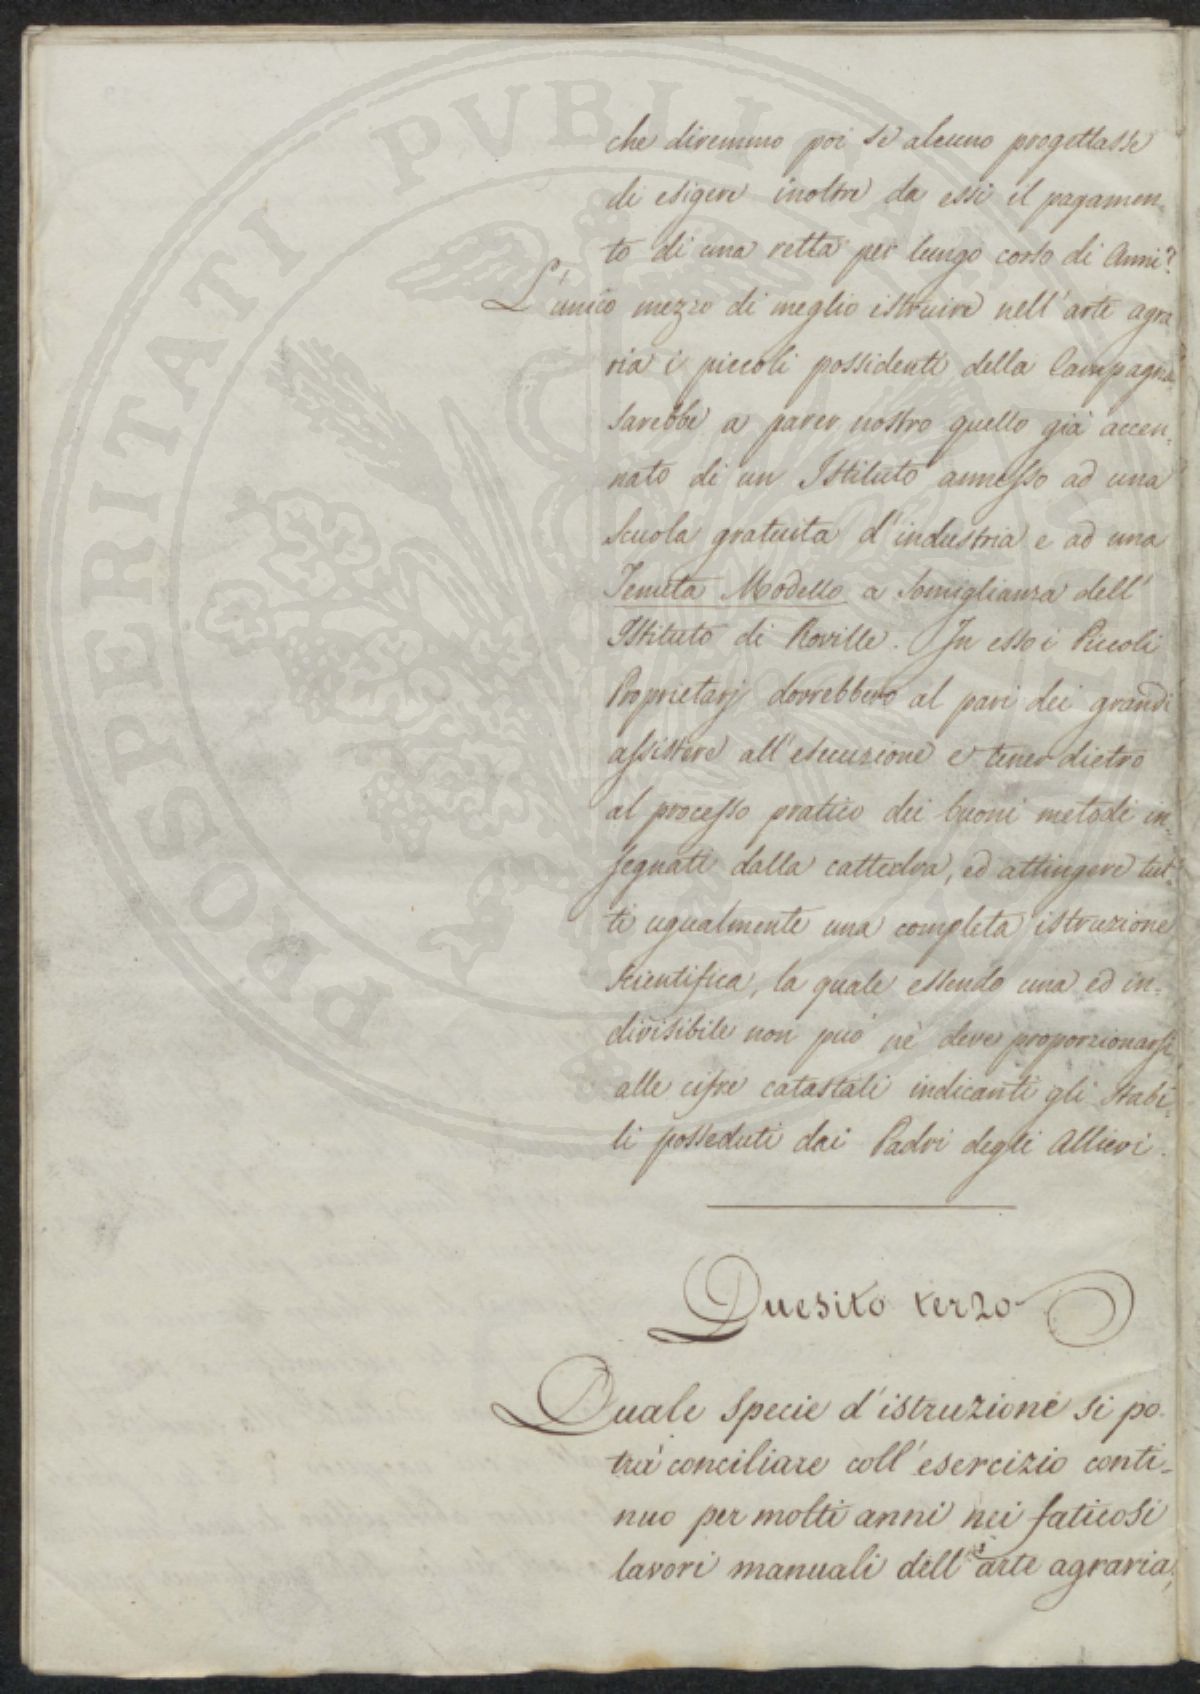 che diremmo poi se alcuno progettasse
di esigere inoltre da essi il pagamen-
to di una retta per lungo corso di Anni?
L'unico mezzo di meglio istruire nell'arte agra
ria i piccoli possidenti della Campagna
sarebbe a parer nostro quello già accen-
nato di un Istituto annesso ad una
Scuola gratuita d'industria e ad una
Tenuta Modello a somiglianza dell'
Istituto di Roville. In esso i Piccoli
Proprietarj dovrebbero al pari dei grandi
assistere all'esecuzione e tener dietro
al processo pratico dei buoni metodi in-
segnati dalla cattedra, ed attingere tut-
ti ugualmente una completa istruzione
scientifica, la quale essendo una ed in-
divisibile non può nè deve proporzionarsi
alle cifre catastali indicanti gli stabi-
li posseduti dai Padri degli Allievi.
Quesito terzo
Quale specie d'istruzione si po-
trà conciliare coll'esercizio conti-
nuo per molti anni nei faticosi
lavori manuali dell'arte agraria,
PROSPERITATI PVBLICAE